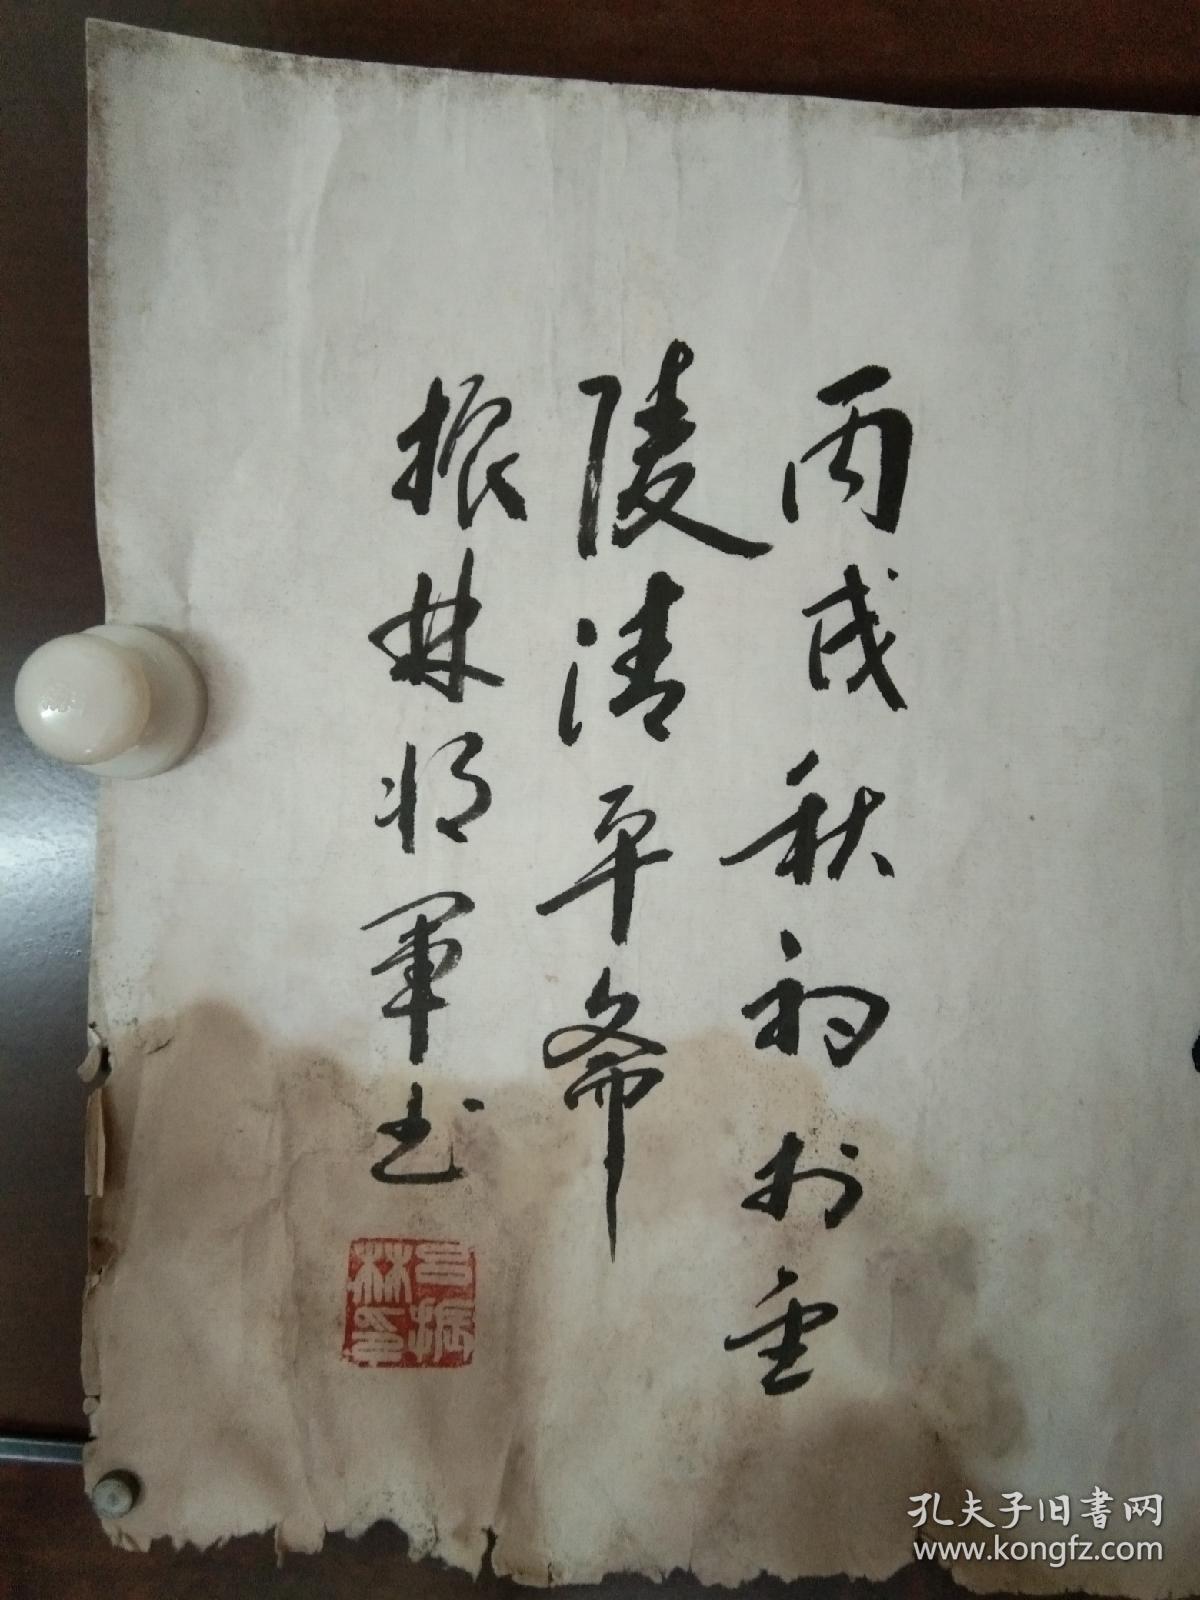 丙戌秋初於金
陵清平斋
振林将軍书
振
林印
孔夫子旧書网
www.kongfz.com